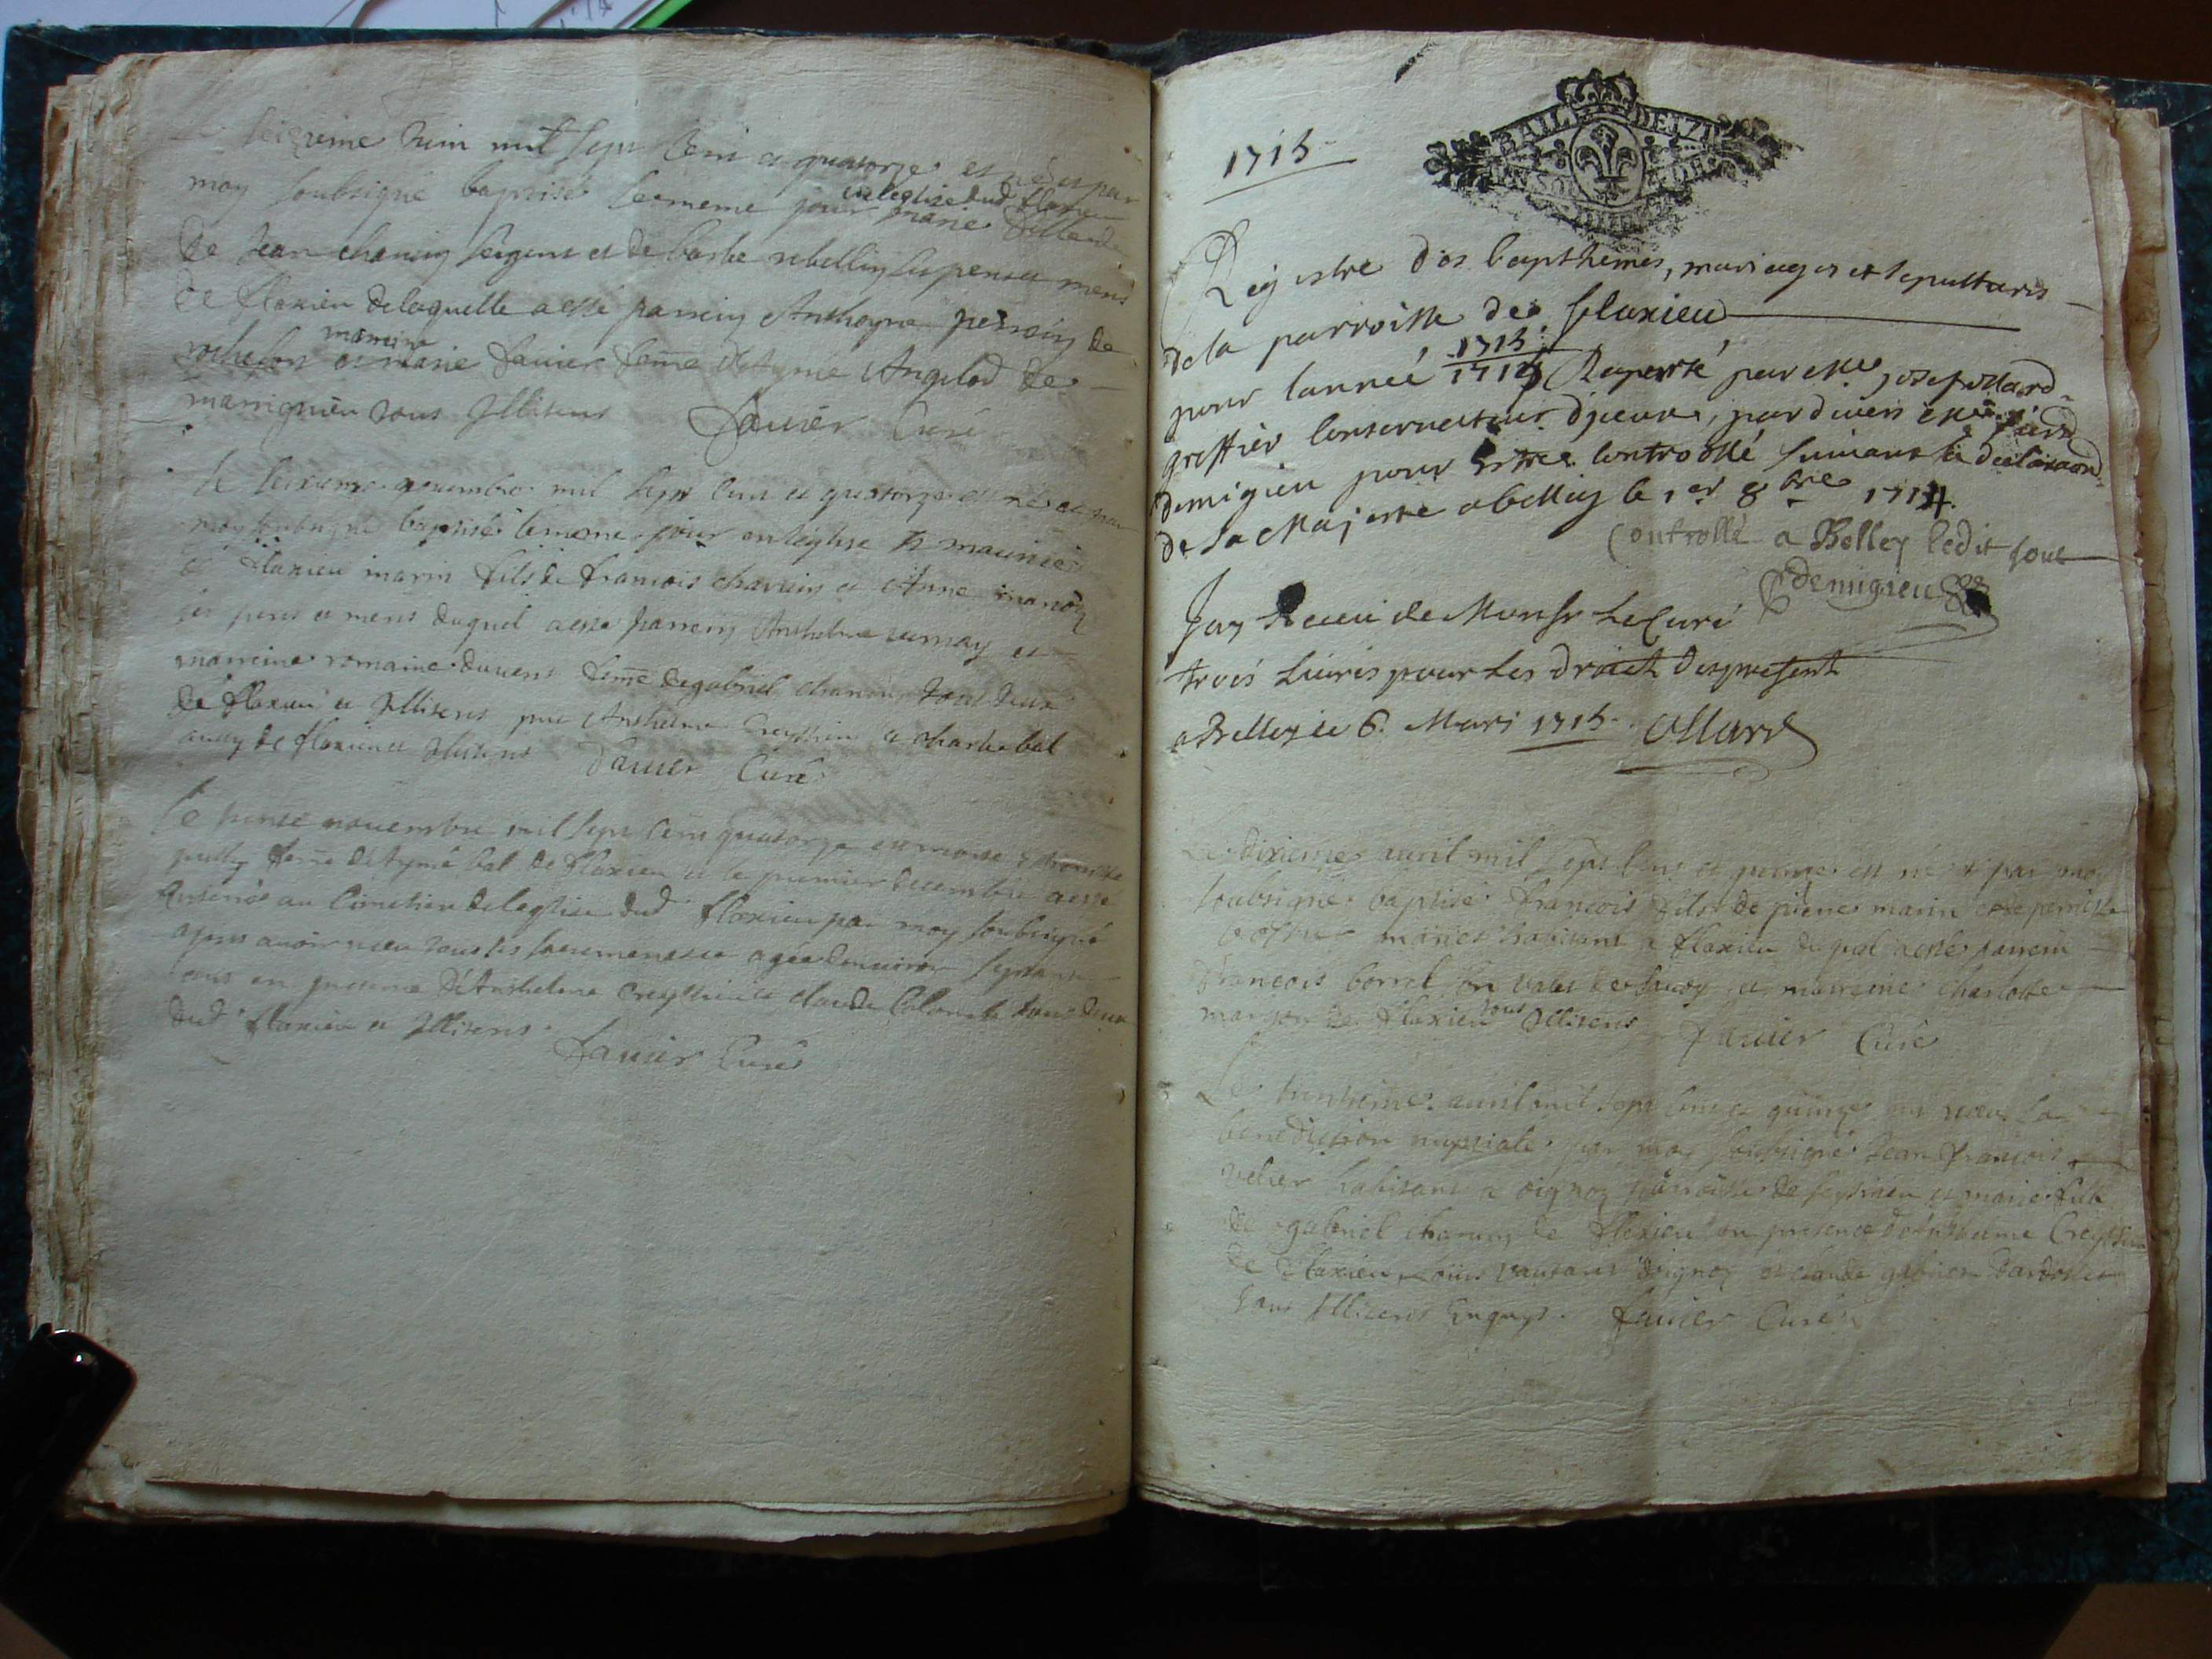 seizieme Juin mil sept cent et quatorze est né et par
moy soubsigné baptisé le meme jour en leglise dud flaxieu marie fille
de Jean charuin sergent et de barbe rebellin ses peres et meres
de flaxieu de laquelle a esté parrein Anthoyne perroin de
rochefort et marreine marie fauier feme detyene Angelod de
marignieu tous Illiterés fauier Curé
le seixieme nouembre mil sept cent et quatorze est né et par
moy soubsigné baptisé le meme jour en leglise St maurice
a flaxieu marin fils de francois charuin et Anne
ses peres et meres duquel a esté parrein Anthelme et
marreine romaine feme de gabriel charuin tous deux
de flaxieu et Illiterés pnt Anthelme Creyssieu et charle bal
aussy de flaxieu et Illiterés fauier Curé
le trente nouembre mil sept cent quatorze est morte
feme detyene bal de flaxieu et le premier decembre a esté
enterrée au Cimetiere de leglise dud flaxieu par moy soubsigné
apres auoir receu tous les sacremens et agée denuiron septante
ans en presence dAnthelme Creyssieu et claude Colomb tous deux
dud flaxieu et Illiterés fauier Curé
1715
BAIL DE IZI
Registre des bapthemes, mariages et sepultures
de la parroisse de flaxieu
pour lannée 1715 1714 Raporté par Me Josep ollard
greffier Conseruateur dyceux, par deuers Me
demigieu pour estre Controollé suiuant la declaraon
de sa Majesté a belley le 1er 8bre 1714
Controllé a Belley ledit jour
demigieu
Jay Receu de Monsr Le Curé
trois Liures pour Les droict du present
a Belley ce 6 Mars 1715 ollard
Le dixieme auril mil sept cens et quinze est né et par moy
soubsigné baptisé francois fils de pierre marin et de pernette
mariés habitant a flaxieu duquel a esté parrein
francois borrel et marreine charlotte
de flaxieu tous Illiterés fauier Curé
Le auril mil sept cens et quinze ont receu la
benediction nuptiale par moy soubsigné Jean francois
velier habitant a oignoz parroisse de et marie fille
de gabriel charuin de flaxieu en presence dAnthelme Creyssieu
de flaxieu doignoz et claude
tous Illiterés Enquys. fauier Curé